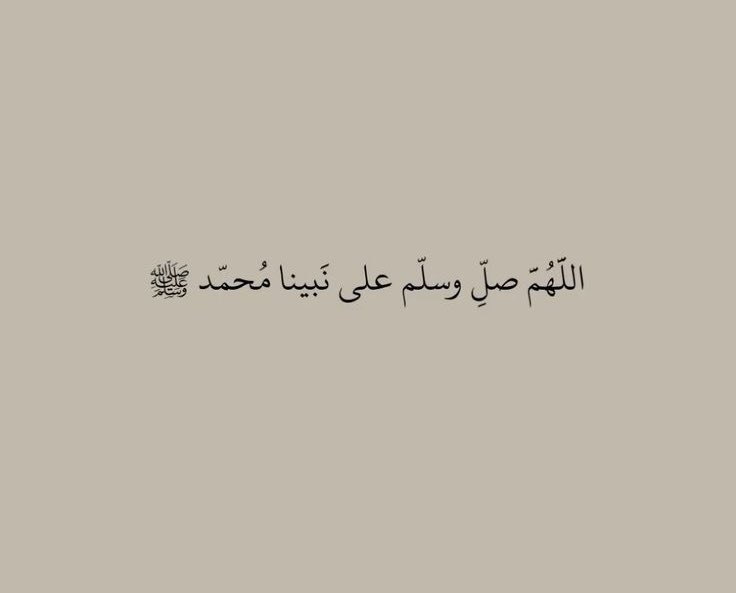 اللّهُمّ صلِّ وسلّم على نَبينا مُحمّد ﷺ